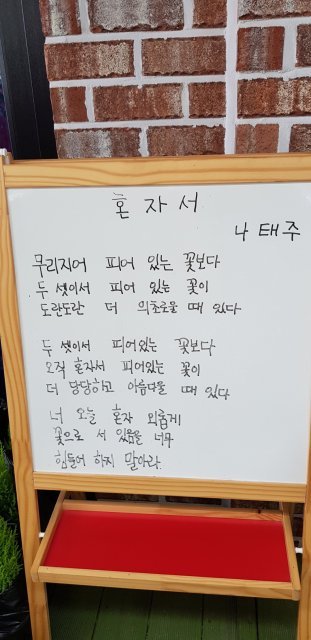 혼자서
나태주
무리지어 피어 있는 꽃보다
두 셋이서 피어 있는 꽃이
도란도란 더 의초로울 때 있다
두 셋이서 피어있는 꽃보다
오직 혼자서 피어있는 꽃이
더 당당하고 아름다울 때 있다
너 오늘 혼자 외롭게
꽃으로 서 있음을 너무
힘들어 하지 말아라.